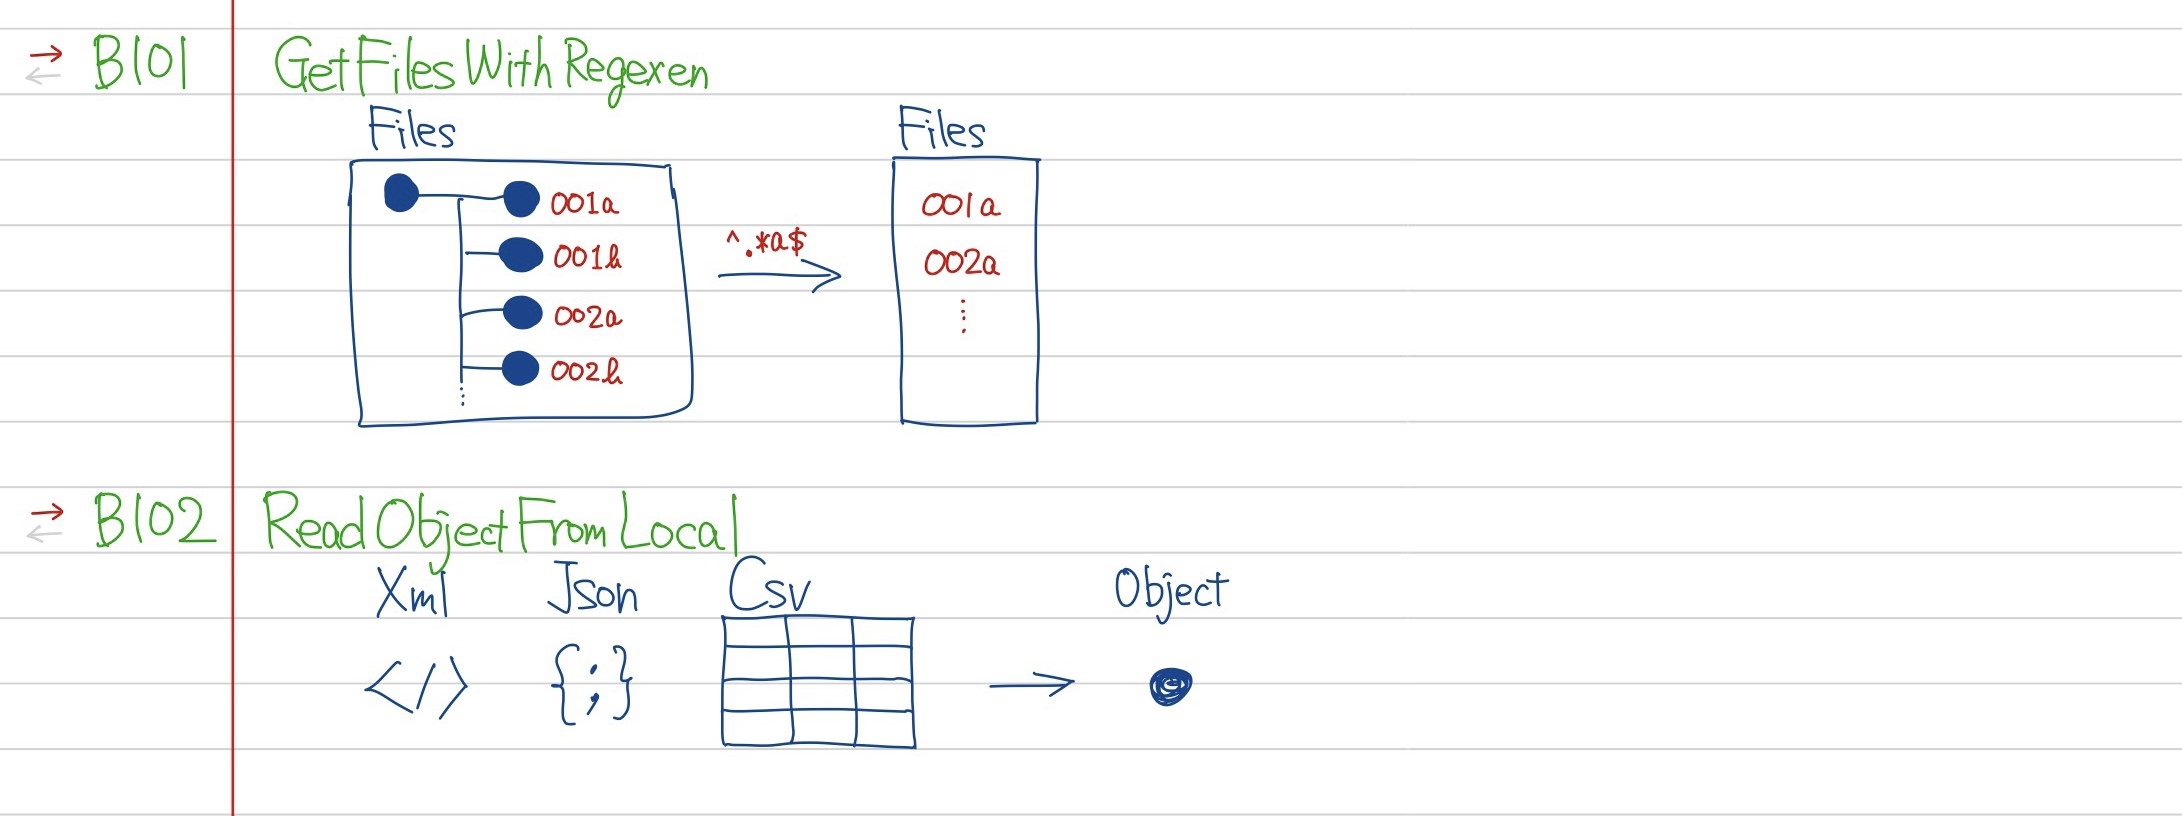 → B101 GetFilesWithRegexen
←
Files Files
001a 001a
001b ^.*a$ 002a
002a ⋮
002b
⋮
→ B102 ReadObjectFromLocal
←
Xml Json Csv Object
</> {;} →